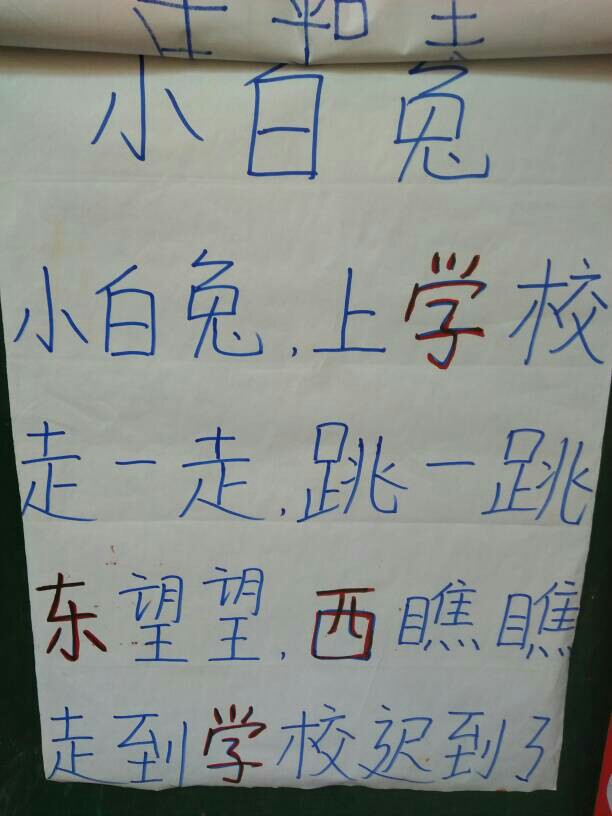 小白兔
小白兔,上学校
走一走,跳一跳
东望望,西瞧瞧
走到学校迟到了